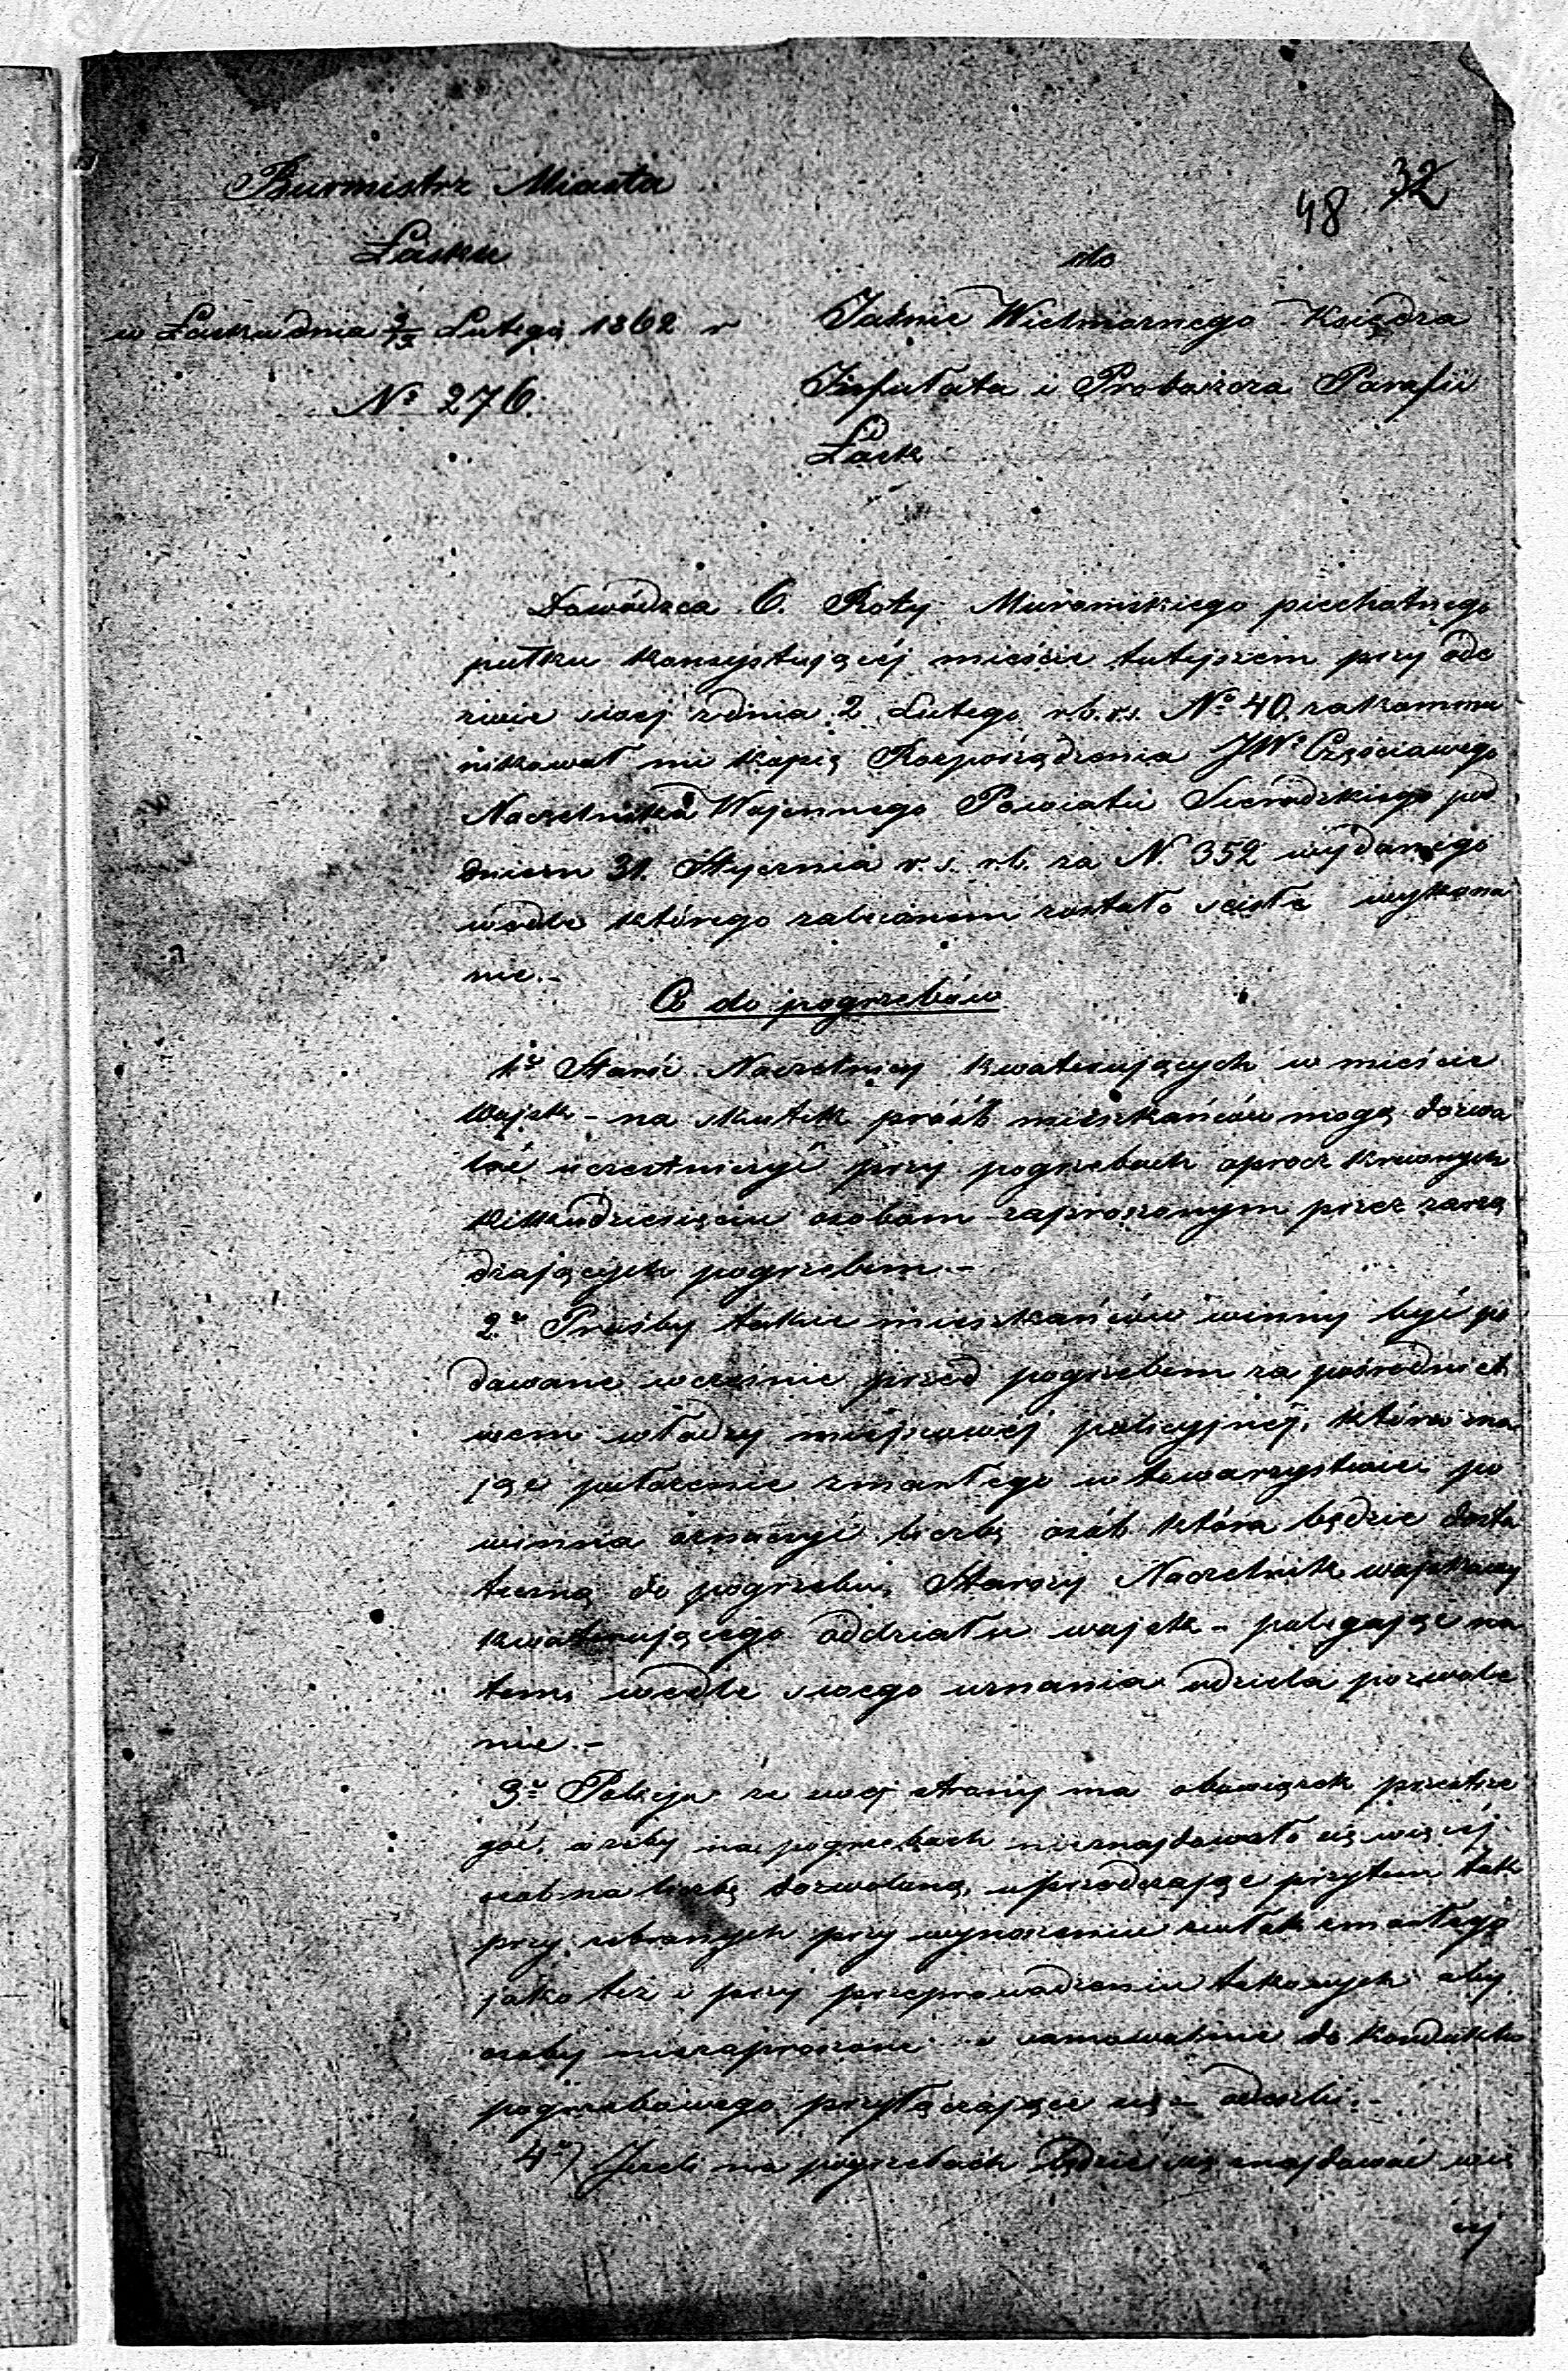 Burmistrz Miasta
Łasku
48 32
w Łasku dnia 3/15 Lutego 1862 r
N° 276.
do
Jaśnie Wielmożnego Księdza
Infułata i Proboszcza Parafii
Łask
Dowódzca 6. Roty Muromskiego piechotnego
pułku konsystującéj mieście tutejszem przy ode
zwie swej z dnia 2 Lutego r.b. v.s. N° 40. zakommu
nikował mi kopią Rozporządzenia JW° Częściowego
Naczelnika Wojennego Powiatu Sieradzkiego pod
dniem 31. Stycznia v. s. r.b. za N. 352 wydanego
wedle którego zaleconem zostało scisłe wykona
nie.-
Co do pogrzebów
1° Starsi Naczelnicy kwaterujących w mieście
Wojsk - na skutek próśb mieszkańców mogą dozwa
lać uczestniczyć przy pogrzebach oprócz krewnych
kilkudziesięciu osobom zaproszonym przez zarzą
dzających pogrzebem.-
2° Prośby takie mieszkańców winny być po
dawane wcześnie przed pogrzebem za pośrednict
wem władzy miejscowéj policyjnéj, która zna
jąc położenie zmarłego w towarzystwie po
winna oznaczyć liczbę osób która będzie dosta
teczną do pogrzebu, Starszy Naczelnik wojskowy
kwaterującego oddziału wojsk - polegając na
tem, wedle swego uznania udziela pozwole
nie.-
3° Policja ze swej strony ma obowiązek przestrze
gać, ażeby na pogrzebach nieznajdowało się więcéj
osób na liczbę dozwoloną, uprzedzając przytem tak
przy zebranych przy wynoszeniu zwłok zmarłego
jako też i przy przeprowadzeniu takowych aby
osoby niezaproszone i samowolnie do konduktu
pogrzebowego przyłączające się - odeszli.-
4°) Jeżeli na pogrzebach będzie się znajdować wię
cej